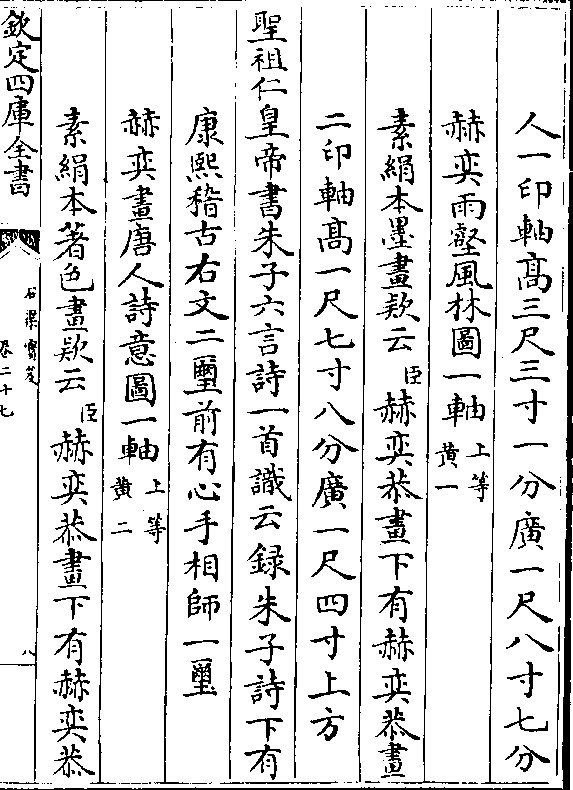 人一印軸髙三尺三寸一分廣一尺八寸七分
赫奕雨壑風林圖一軸上等黄一
素絹本墨畫欵云臣赫奕恭畫下有赫奕恭畫
二印軸髙一尺七寸八分廣一尺四寸上方
聖祖仁皇帝書朱子六言詩一首識云錄朱子詩下有
康熙稽古右文二璽前有心手相師一璽
赫奕畫唐人詩意圖一軸上等黄二
素絹本著色畫欵云臣赫奕恭畫下有赫奕恭
欽定四庫全書
石渠寳笈
卷二十七
八